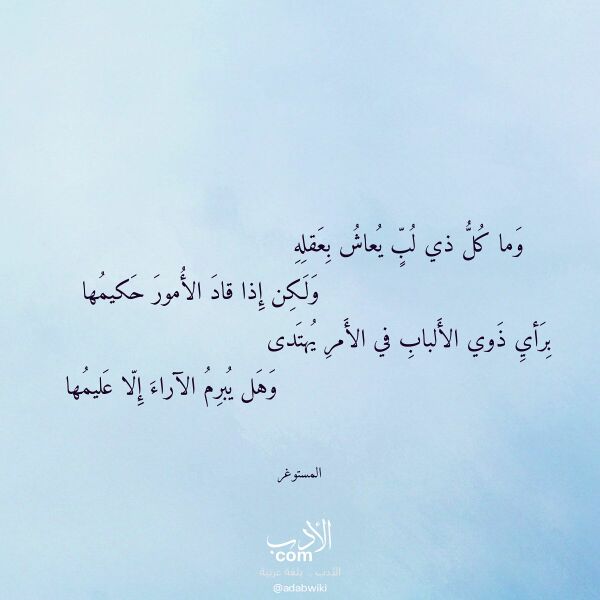 وَما كُلُّ ذي لُبٍّ يُعاشُ بِعَقلِهِ
وَلَكِن إِذا قادَ الأُمورَ حَكيمُها
بِرَأيِ ذَوي الأَلبابِ في الأَمرِ يُهتَدى
وَهَل يُبرِمُ الآراءَ إِلّا عَليمُها
المستوغر
الأدب
com
الأدب .. بلغة عربية
@adabwiki